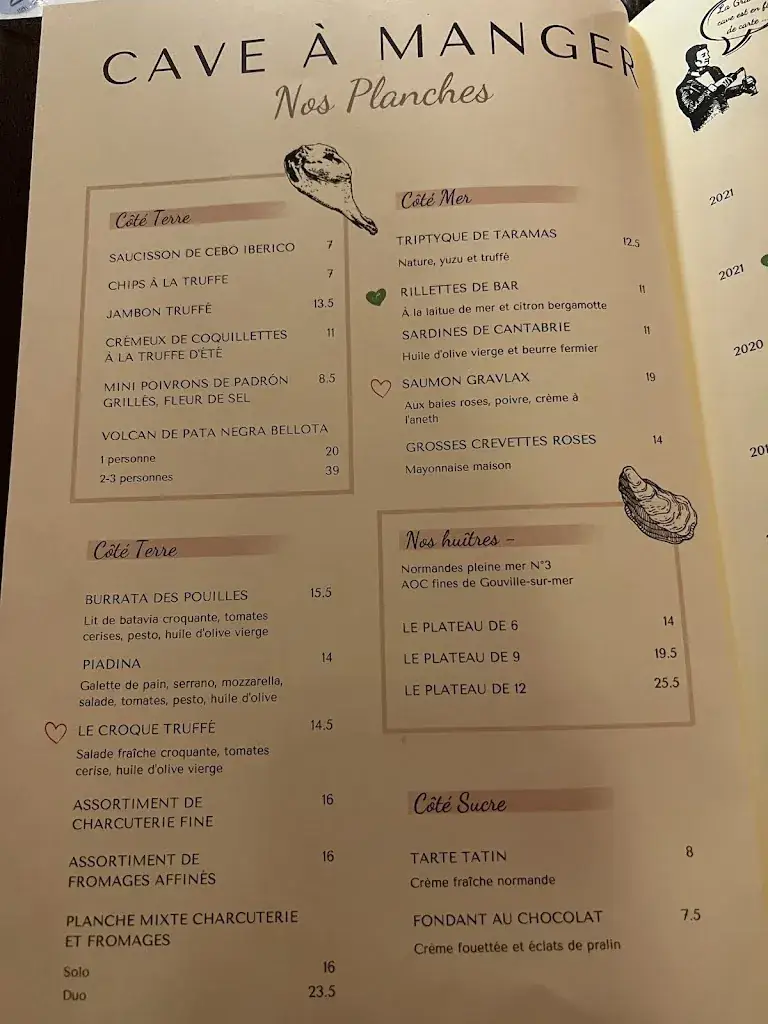 CAVE À MANGER
Nos Planches
Côté Terre
SAUCISSON DE CEBO IBERICO 7
CHIPS À LA TRUFFE 7
JAMBON TRUFFÉ 13.5
CRÉMEUX DE COQUILLETTES 11
À LA TRUFFE D'ÉTÉ
MINI POIVRONS DE PADRÓN 8.5
GRILLÉS, FLEUR DE SEL
VOLCAN DE PATA NEGRA BELLOTA
1 personne 20
2-3 personnes 39
Côté Terre
BURRATA DES POUILLES 15.5
Lit de batavia croquante, tomates
cerises, pesto, huile d'olive vierge
PIADINA 14
Galette de pain, serrano, mozzarella,
salade, tomates, pesto, huile d'olive
LE CROQUE TRUFFÉ 14.5
Salade fraîche croquante, tomates
cerise, huile d'olive vierge
ASSORTIMENT DE 16
CHARCUTERIE FINE
ASSORTIMENT DE 16
FROMAGES AFFINÉS
PLANCHE MIXTE CHARCUTERIE
ET FROMAGES
Solo 16
Duo 23.5
Côté Mer
TRIPTYQUE DE TARAMAS 12.5
Nature, yuzu et truffé
RILLETTES DE BAR 11
À la laitue de mer et citron bergamotte
SARDINES DE CANTABRIE 11
Huile d'olive vierge et beurre fermier
SAUMON GRAVLAX 19
Aux baies roses, poivre, crème à
l'aneth
GROSSES CREVETTES ROSES 14
Mayonnaise maison
Nos huîtres –
Normandes pleine mer N°3
AOC fines de Gouville-sur-mer
LE PLATEAU DE 6 14
LE PLATEAU DE 9 19.5
LE PLATEAU DE 12 25.5
Côté Sucre
TARTE TATIN 8
Crème fraîche normande
FONDANT AU CHOCOLAT 7.5
Crème fouettée et éclats de pralin
La
cave est en
de carte
2021
2021
2020